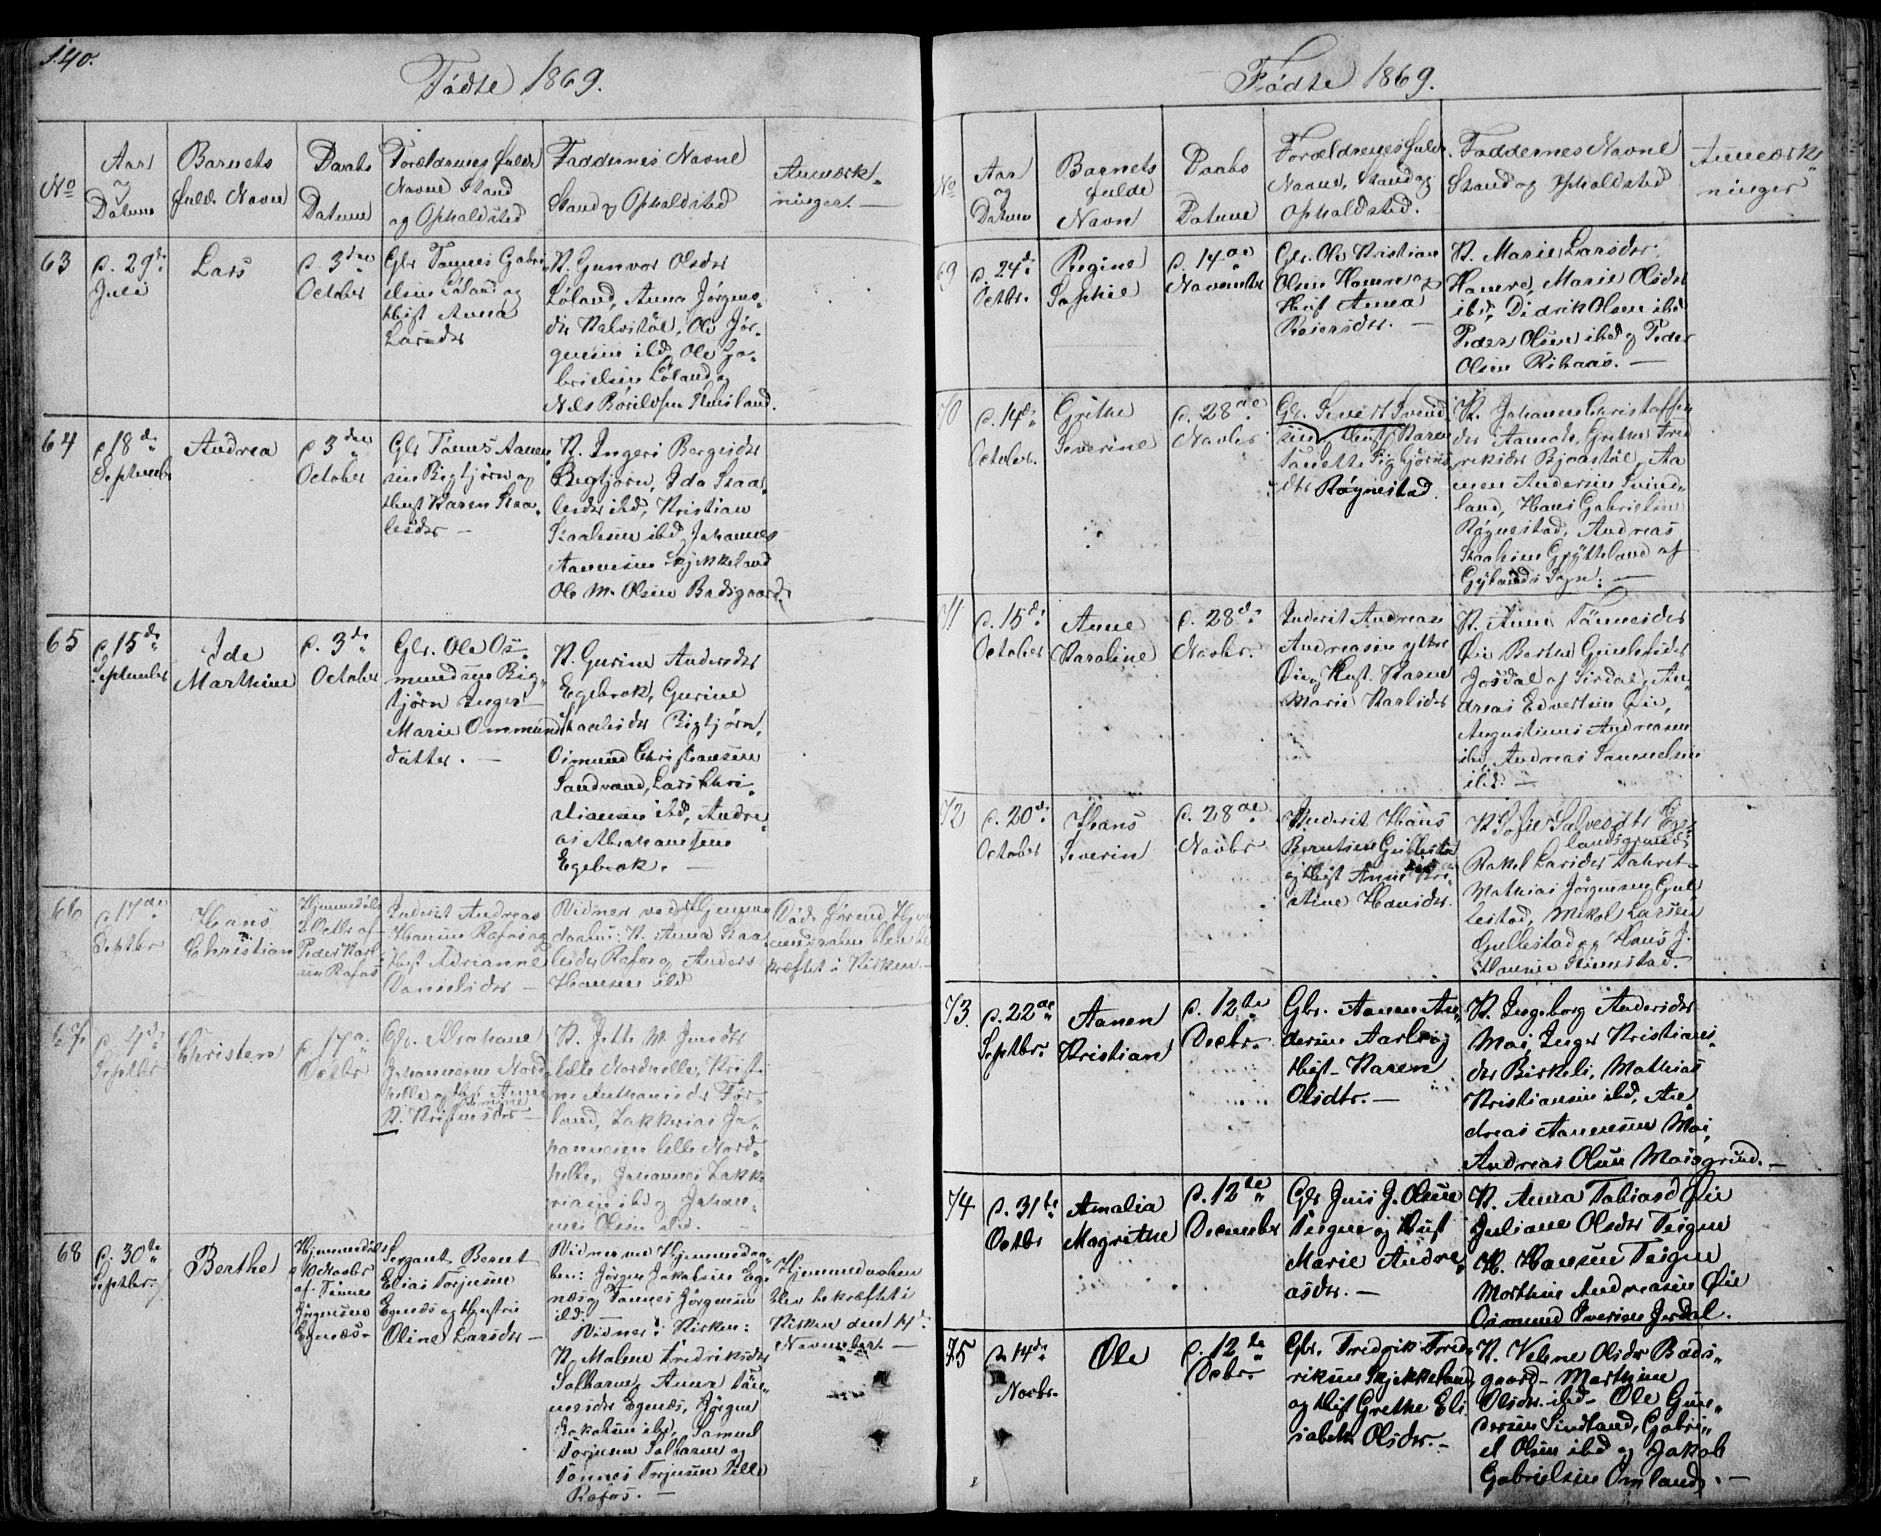 140.
Födte 1869.
No
Aar
og
Datum
Barnets
fulde Navn
Daabs
Datum
Forældrenes fulde
Navne Stand
og Opholdsted
Faddernes Navne
Stand og Opholdsted
Anmærk-
ninger. —
63
d. 29de
Juli
Lars
d. 3die
October
Gbr Tønnes Gabri
elsen Löland og
Hust Anna
Larsdtr
K. Gunvor Olsdtr
Löland, Anna Jørgens-
dtr Kalvstöl, Ole Jör-
gensen ibd Ole Ga-
brielsen Löland og
64
d 18de
September
Andrea
d 3die
October
Gbr Tönnes Aanen
sen Bigtjørn og
Hust Karen Staa-
lesdtr —
K. Ingeri Bergesdtr
Bigtjørn, Ida Staa-
lesdtr ibd, Kristian
Staalesen ibd, Johannes
Aanensen Skjekkeland
Ole M. Olsen Badsgaard.
65
d. 15de
September
Ide
Marthine
d. 3de
October
Gbr. Ole Os-
mundsen Big-
tjörn Inger
Marie Ommund
datter. —
K. Gurine Andersdtr
Egebrok, Gurine
Staalesdtr Bigtjörn,
Osmund Christiansen
Sandvand, Lars Chri-
stiansen ibd, Andre-
as Abrahamsen
Egebrok. —
66
d. 17de
Septbr
Hans
Christian
Hjemmedöbt
2 Octbr af
Peder Karl-
sen Rafos
Inderst Andreas
Hansen Rafos og
Hust Adrianne
Danielsdtr —
Vidner ved Hjemme
daaben: K. Anna Staa
lesdtr Rafos og Anders
Hansen ibd
kræftet i Kirken. —
67.
d. 4de
Septbr
Christen
d 17de
Octbr
Gbr. Abraham
Johannesen Nord-
helle og Hust Anne
K. Kristensdtr —
K. Jette M. Jensdtr
lille Nordhelle, Krist-
land, Zakkarias Jo-
hannesen lille Nord-
helle, Johannes Zakk-
riasen ibd og Johan-
nes Olsen ibd. —
68
d. 30te
Septbr
Berthe
Hjemmedöbt
af Tönnes
Jörgensen
Egenæs-
Sergant Bernt
Elias Torjusen
Egenæs og Hustru
Oline Larsdtr —
Vidner ved Hjemmedaa-
ben: Jörgen Jakobsen Ege
næs og Tönnes Jörgensen
ibd. —
Vidner i Kirken:
K. Malene Fredriksdtr
Solbaren, Anna Tön-
nesdtr Egenæs, Jörgen
Jakobsen ibd, Samuel
Torjusen Solbaren og
Tönnes Torjusen Lille
Rafos. —
Hjemmedaaben
blev bekræftet i
Kirken den 14de
November. —
Födte 1869.
No
Aar
og
Datum
Barnets
fulde
Navn
Daabs
Datum
Forældrenes fulde
Navne, Stand og
Opholdsted.
Faddernes Navne
Stand og Opholdsted
Anmærk-
ninger
69
d. 24de
Octbr.
Regine
Sophie
d. 14de
November
Gbr. Ole Kristian
Olsen Hamre og
Hust Anna
Reiersdtr. —
K. Marie Larsdtr
Hamre, Marie Olsdtr
ibd, Didrik Olsen ibd
Peder Olsen ibd og Peder
Olsen Risaas. —
70
d. 14de
October.
Grethe
Severine
d. 28de
Novbr
Gbr. Severt Svend
sen Hust Karen
Tonette Sigbjörns
dtr Røgnestad.
K. Johanne Christoffers
dtr Aamodt, Grethe Fred
riksdtr Bjaastöl, Aa
nen Andersen Svind-
land, Hans Gabrielsen
Røgnestad, Andreas
Staalesen Grytteland af
Gylands Sogn. —
71
d. 15de
October
Anne
Karoline
d. 28de
Novbr.
Inderst Andreas
Andreasen ytre
Öie og Hust. Karen
Marie Karlsdtr
K. Anne Tönnesdtr
Öie Berthe Gunlesdtr
Josdal af Sirdal, An-
dreas Edvertsen Öie,
Augustinus Andreasen
ibd, Andreas Samuelsen
ibd. —
72
d. 20de
October
Hans
Severin
d. 28de
Novbr
Inderst Hans
Berntsen Gullestad
og Hust Anne Kri-
stine Hansdtr.
K Sofie Salvesdtr Ege-
landsgrund,
Rakel Larsdtr
Mathias Jörgensen Gul-
lestad, Mikal Larsen
Gullestad og Hans J.
73.
d. 22de
Septbr.
Aanen
Kristian
d. 12te
Decbr.
Gbr. Aanen An-
dersen Aarli og
Hust- Karen
Olsdtr. —
K. Ingeborg Andersdtr
Moi, Inger Kristians-
dtr Birkeli, Mathias
Kristiansen ibd, An-
dreas Aanensen Moi,
Andreas Olsen Moisgrund. —
74
d. 31te
Octbr
Amalia
Magrethe
d. 12te
December
Gbr Jens J. Olsen
Teigen og Hust
Marie Andre-
asdtr. —
K. Anna Tobiasd Öie
Juliane Olsdtr Teigen
H. Hansen Teigen
Morthen Andreasen Öie
Osmund Iversen Jerdal.
75
d. 14de
Novbr.
Ole
d. 12te
Decbr. —
Gbr. Fredrik Fred-
riksen Skjekkeland
og Hust Grethe Eli
sabeth Olsdtr. —
K. Velene Olsdtr Bads-
gaard- Marthine
Olsdtr ibd- Ole Gun-
dersen Sindland, Gabri-
el Olsen ibd og Jakob
Gabrielsen Omland. —